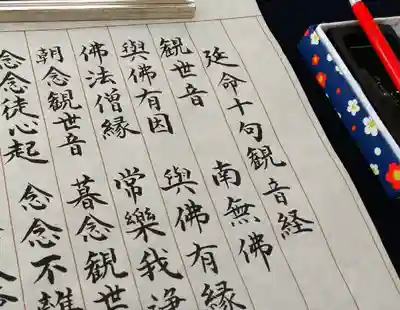 延命十句観音経
観世音 南無佛
與佛有因 與佛有縁
佛法僧縁 常樂我浄
朝念観世音 暮念観世
念念従心起 念念不離